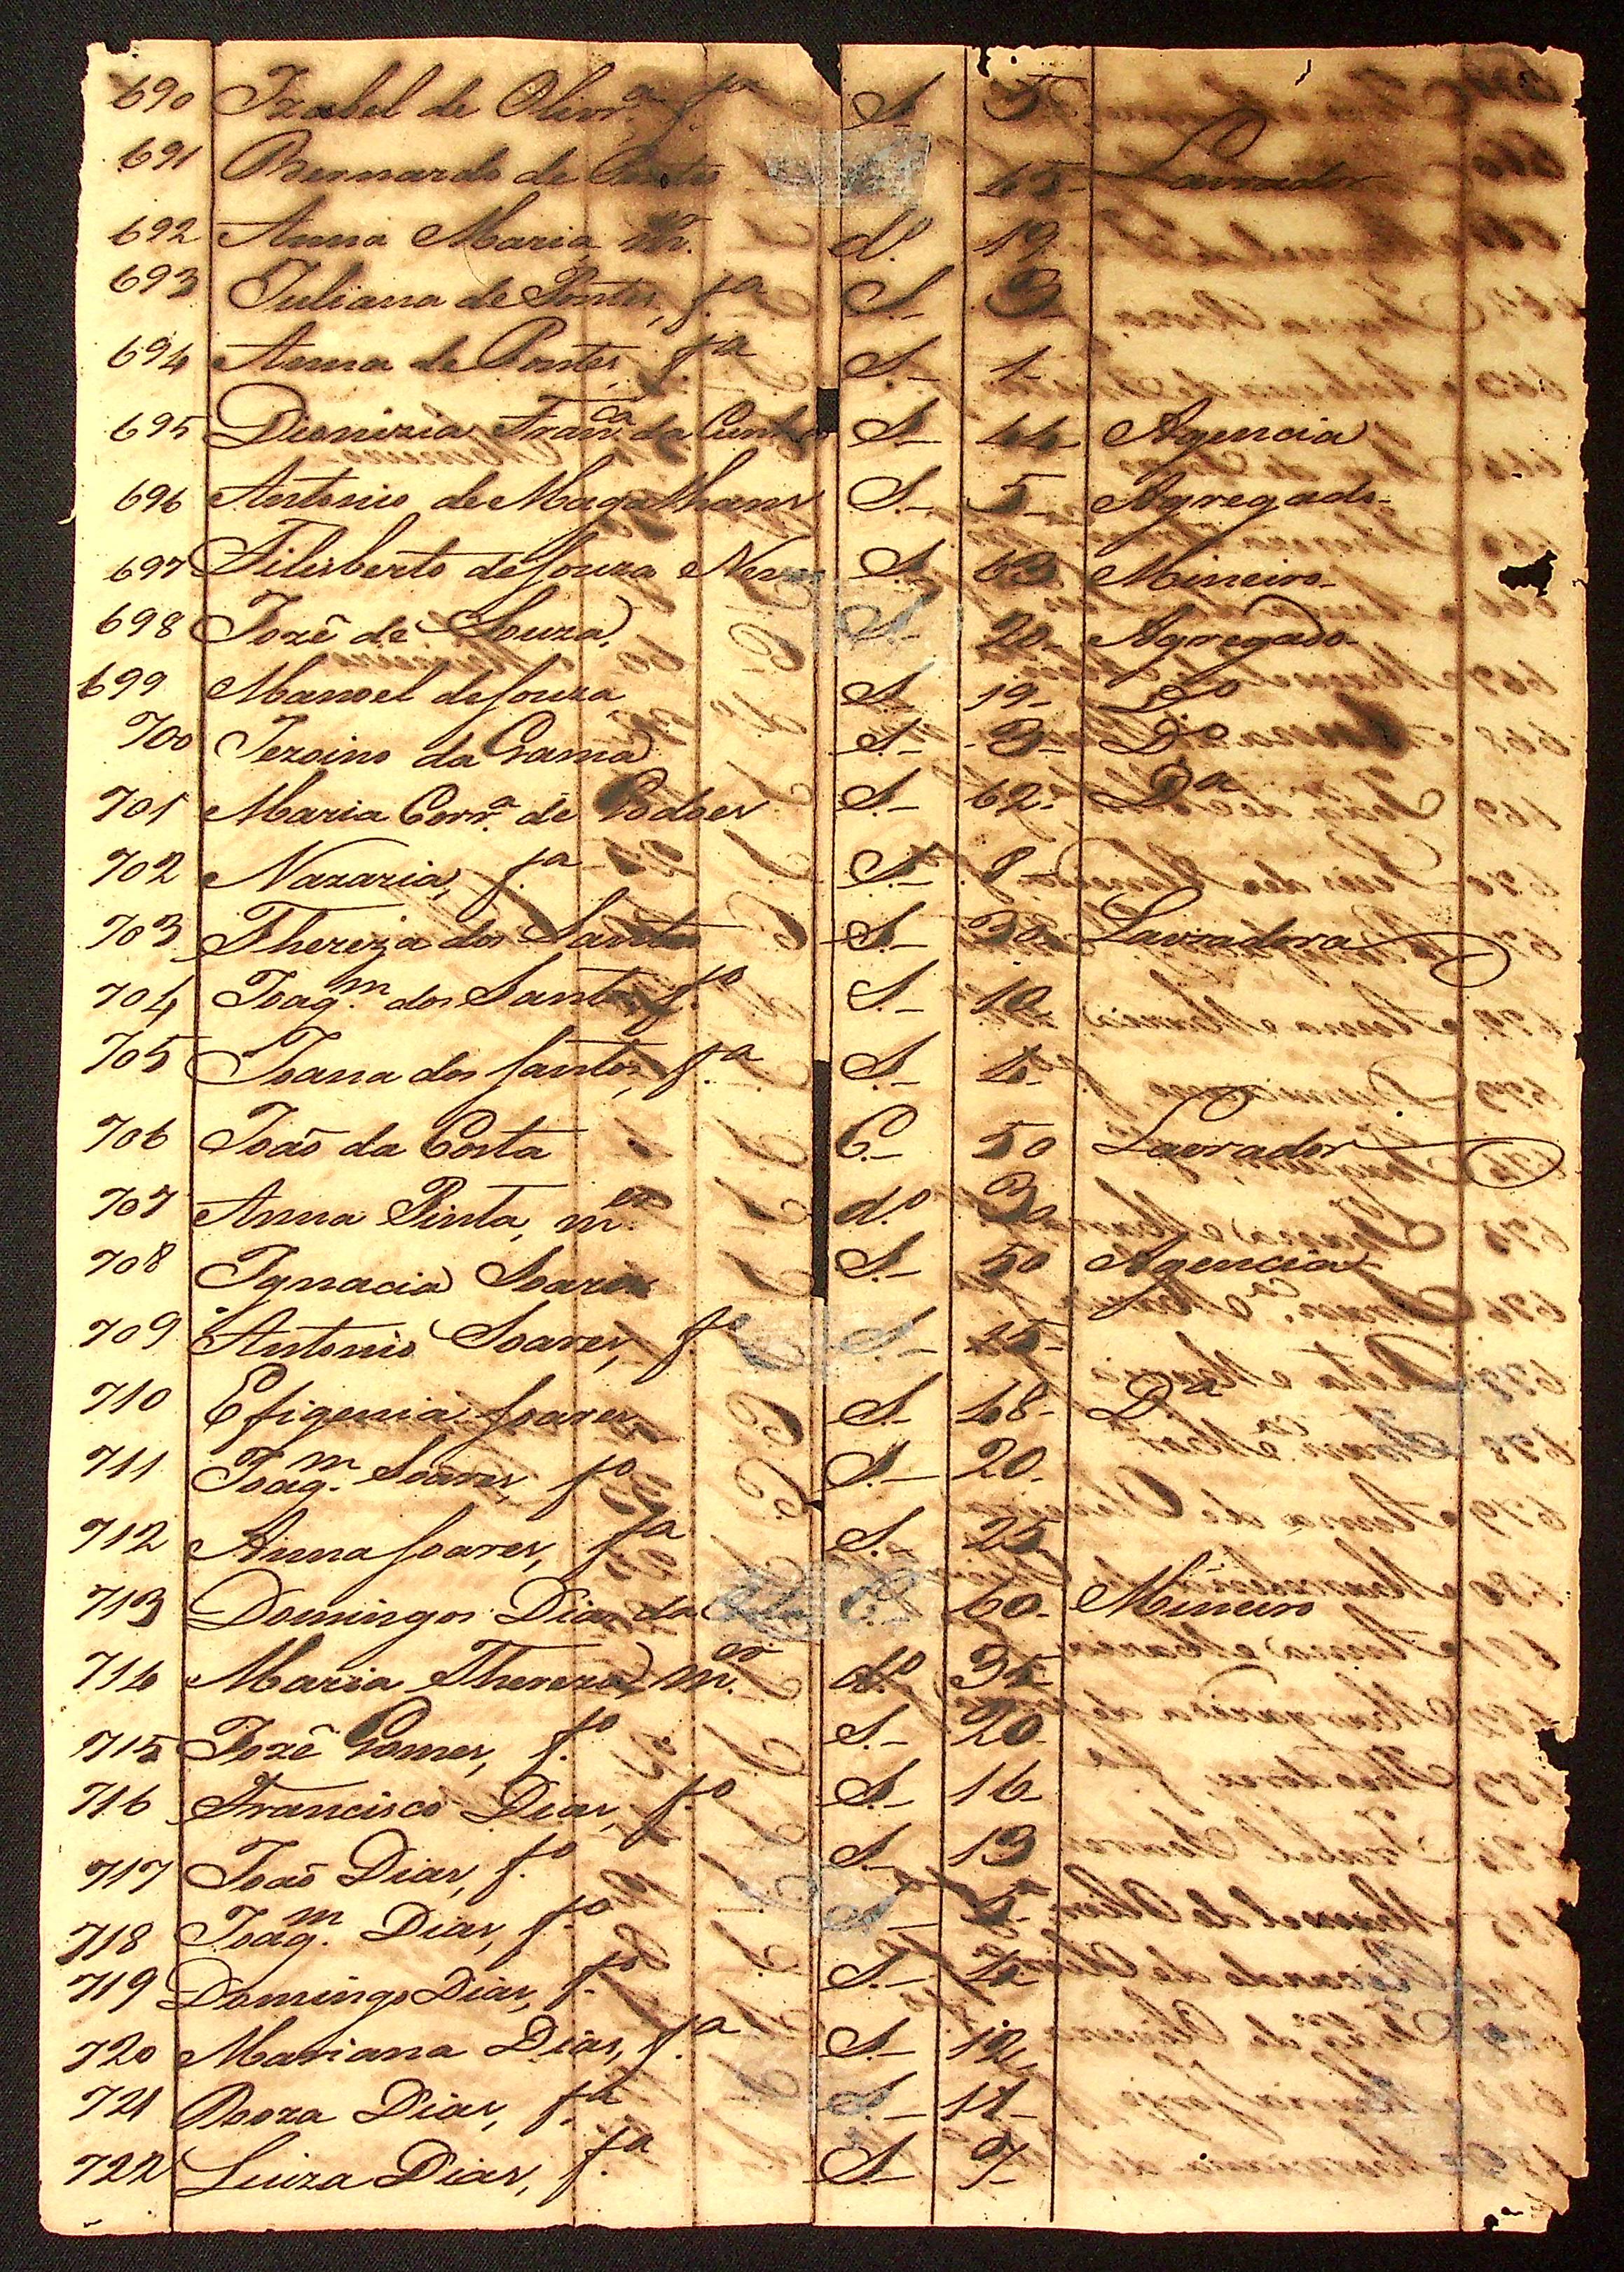 690 Izabel de Olivr.ª f.ª S.- 5
691 Bernardo de Pontes 45- Lavrador
692 Anna Maria, m.er d.º 19
693 Juliana de Pontes, f.ª S.- 3
694 Anna de Pontes, f.ª S.- 1-
695 Dionizia Fran.ca da Cunha S.- 44 Agencia
696 Antonio de Magalhans S.- 5 Agregado-
697 Filisberto de Souza Neves S.- 63 Mineiro-
698 Jozê de Souza S.- 20- Agregado-
699 Manoel de Souza S.- 19- Dº
700 Jeroino da Gama S.- 3- Dº
701 Maria Corr.ª de Godoes S.- 62- Dª
702 Nazaria, f.ª S.- 8-
703 Thereza dos Santos S.- 30 Lavradora
704 Joaq.m dos Santos, f.º S.- 10
705 Joana dos Santos, f.ª S.- 4-
706 João da Costa C.- 50 Lavrador
707 Anna Pinta, m.er d.º 30
708 Ignacia Soares S.- 50 Agencia
709 Antonio Soares, f.º S.- 15-
710 Efigenia Soares S.- 48- Dª
711 Joaq.m Soares, f.º S.- 20-
712 Anna Soares, f.ª S.- 25
713 Domingos Dias da C.- 60- Mineiro
714 Maria Thereza, m.er d.º 35
715 Jozê Gomes, f.º S.- 20-
716 Francisco Dias, f.º S.- 16
717 João Dias, f.º S.- 13
718 Joaq.m Dias, f.º S.-
719 Domingo Dias, f.º S.-
720 Mariana Dias, f.ª S.- 12
721 Roza Dias, f.ª S.- 11-
722 Luiza Dias, f.ª S.- 7-